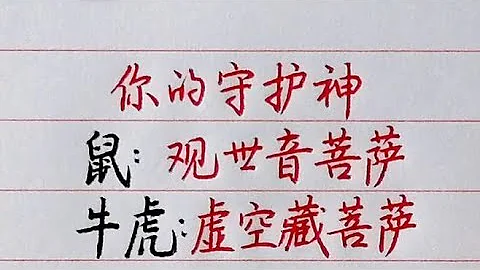 你的守护神
鼠:观世音菩萨
牛虎:虚空藏菩萨